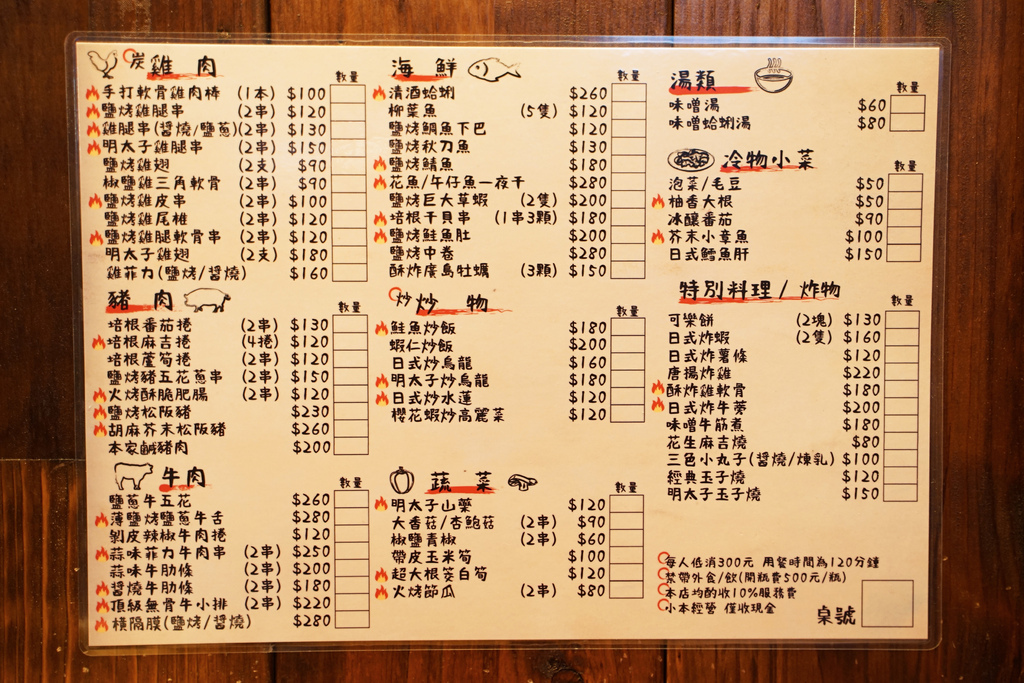 炭雞肉
數量
手打軟骨雞肉棒 (1本) $100
鹽烤雞腿串 (2串) $120
雞腿串(醬燒/鹽蔥)(2串) $130
明太子雞腿串 (2串) $150
鹽烤雞翅 (2支) $90
椒鹽雞三角軟骨 (2串) $90
鹽烤雞皮串 (2串) $100
鹽烤雞尾椎 (2串) $120
鹽烤雞腿軟骨串 (2串) $120
明太子雞翅 (2支) $180
雞菲力(鹽烤/醬燒) $160
豬肉
數量
培根番茄捲 (2串) $130
培根麻吉捲 (4捲) $120
培根蘆筍捲 (2串) $120
鹽烤豬五花蔥串 (2串) $150
火烤酥脆肥腸 (2串) $120
鹽烤松阪豬 $230
胡麻芥末松阪豬 $260
本家鹹豬肉 $200
牛肉
數量
鹽蔥牛五花 $260
薄鹽烤鹽蔥牛舌 $280
剝皮辣椒牛肉捲 $120
蒜味菲力牛肉串 (2串) $250
蒜味牛肋條 (2串) $200
醬燒牛肋條 (2串) $180
頂級無骨牛小排 (2串) $220
橫隔膜(鹽烤/醬燒) $280
海鮮
數量
清酒蛤蜊 $260
柳葉魚 (5隻) $120
鹽烤鯛魚下巴 $120
鹽烤秋刀魚 $130
鹽烤鯖魚 $180
花魚/午仔魚一夜干 $280
鹽烤巨大草蝦 (2隻) $200
培根干貝串 (1串3顆) $180
鹽烤鮭魚肚 $200
鹽烤中卷 $280
酥炸廣島牡蠣 (3顆) $150
炒炒物
數量
鮭魚炒飯 $180
蝦仁炒飯 $200
日式炒烏龍 $160
明太子炒烏龍 $180
日式炒水蓮 $120
櫻花蝦炒高麗菜 $120
蔬菜
數量
明太子山藥 $120
大香菇/杏鮑菇 (2串) $90
椒鹽青椒 (2串) $60
帶皮玉米筍 $100
超大根茭白筍 $120
火烤節瓜 (2串) $80
湯類
數量
味噌湯 $60
味噌蛤蜊湯 $80
冷物小菜
數量
泡菜/毛豆 $50
柚香大根 $50
冰釀番茄 $90
芥末小章魚 $100
日式鱈魚肝 $150
特別料理/炸物
數量
可樂餅 (2塊) $130
日式炸蝦 (2隻) $160
日式炸薯條 $120
唐揚炸雞 $220
酥炸雞軟骨 $180
日式炸牛蒡 $200
味噌牛筋煮 $180
花生麻吉燒 $80
三色小丸子(醬燒/煉乳) $100
經典玉子燒 $120
明太子玉子燒 $150
每人低消300元 用餐時間為120分鐘
禁帶外食/飲(開瓶費500元/瓶)
本店均酌收10%服務費
小本經營 僅收現金
桌號